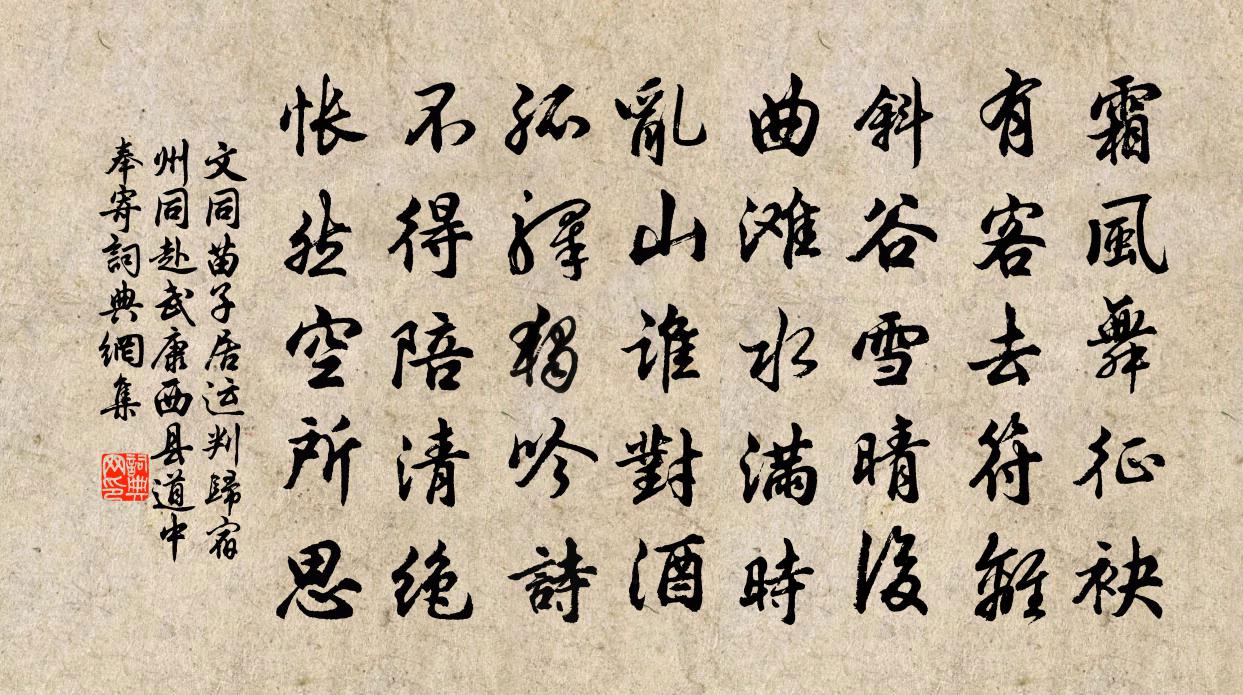 霜風舞征袂
有客去符離
斜谷雪晴後
曲滩水满時
亂山誰對酒
孤驛獨吟詩
不得陪清绝
悵然空所思
文同苗子居运判歸宿
州同赴武康西县道中
奉寄詞典網集
詞典网印